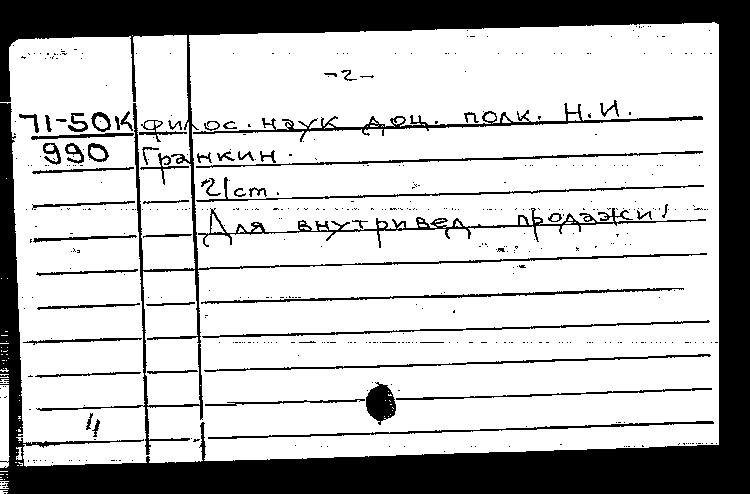 -2-
71-50К филос. наук доц. полк. Н.И.
990 Гранкин.
21 ст.
Для внутривед. продажи!
4